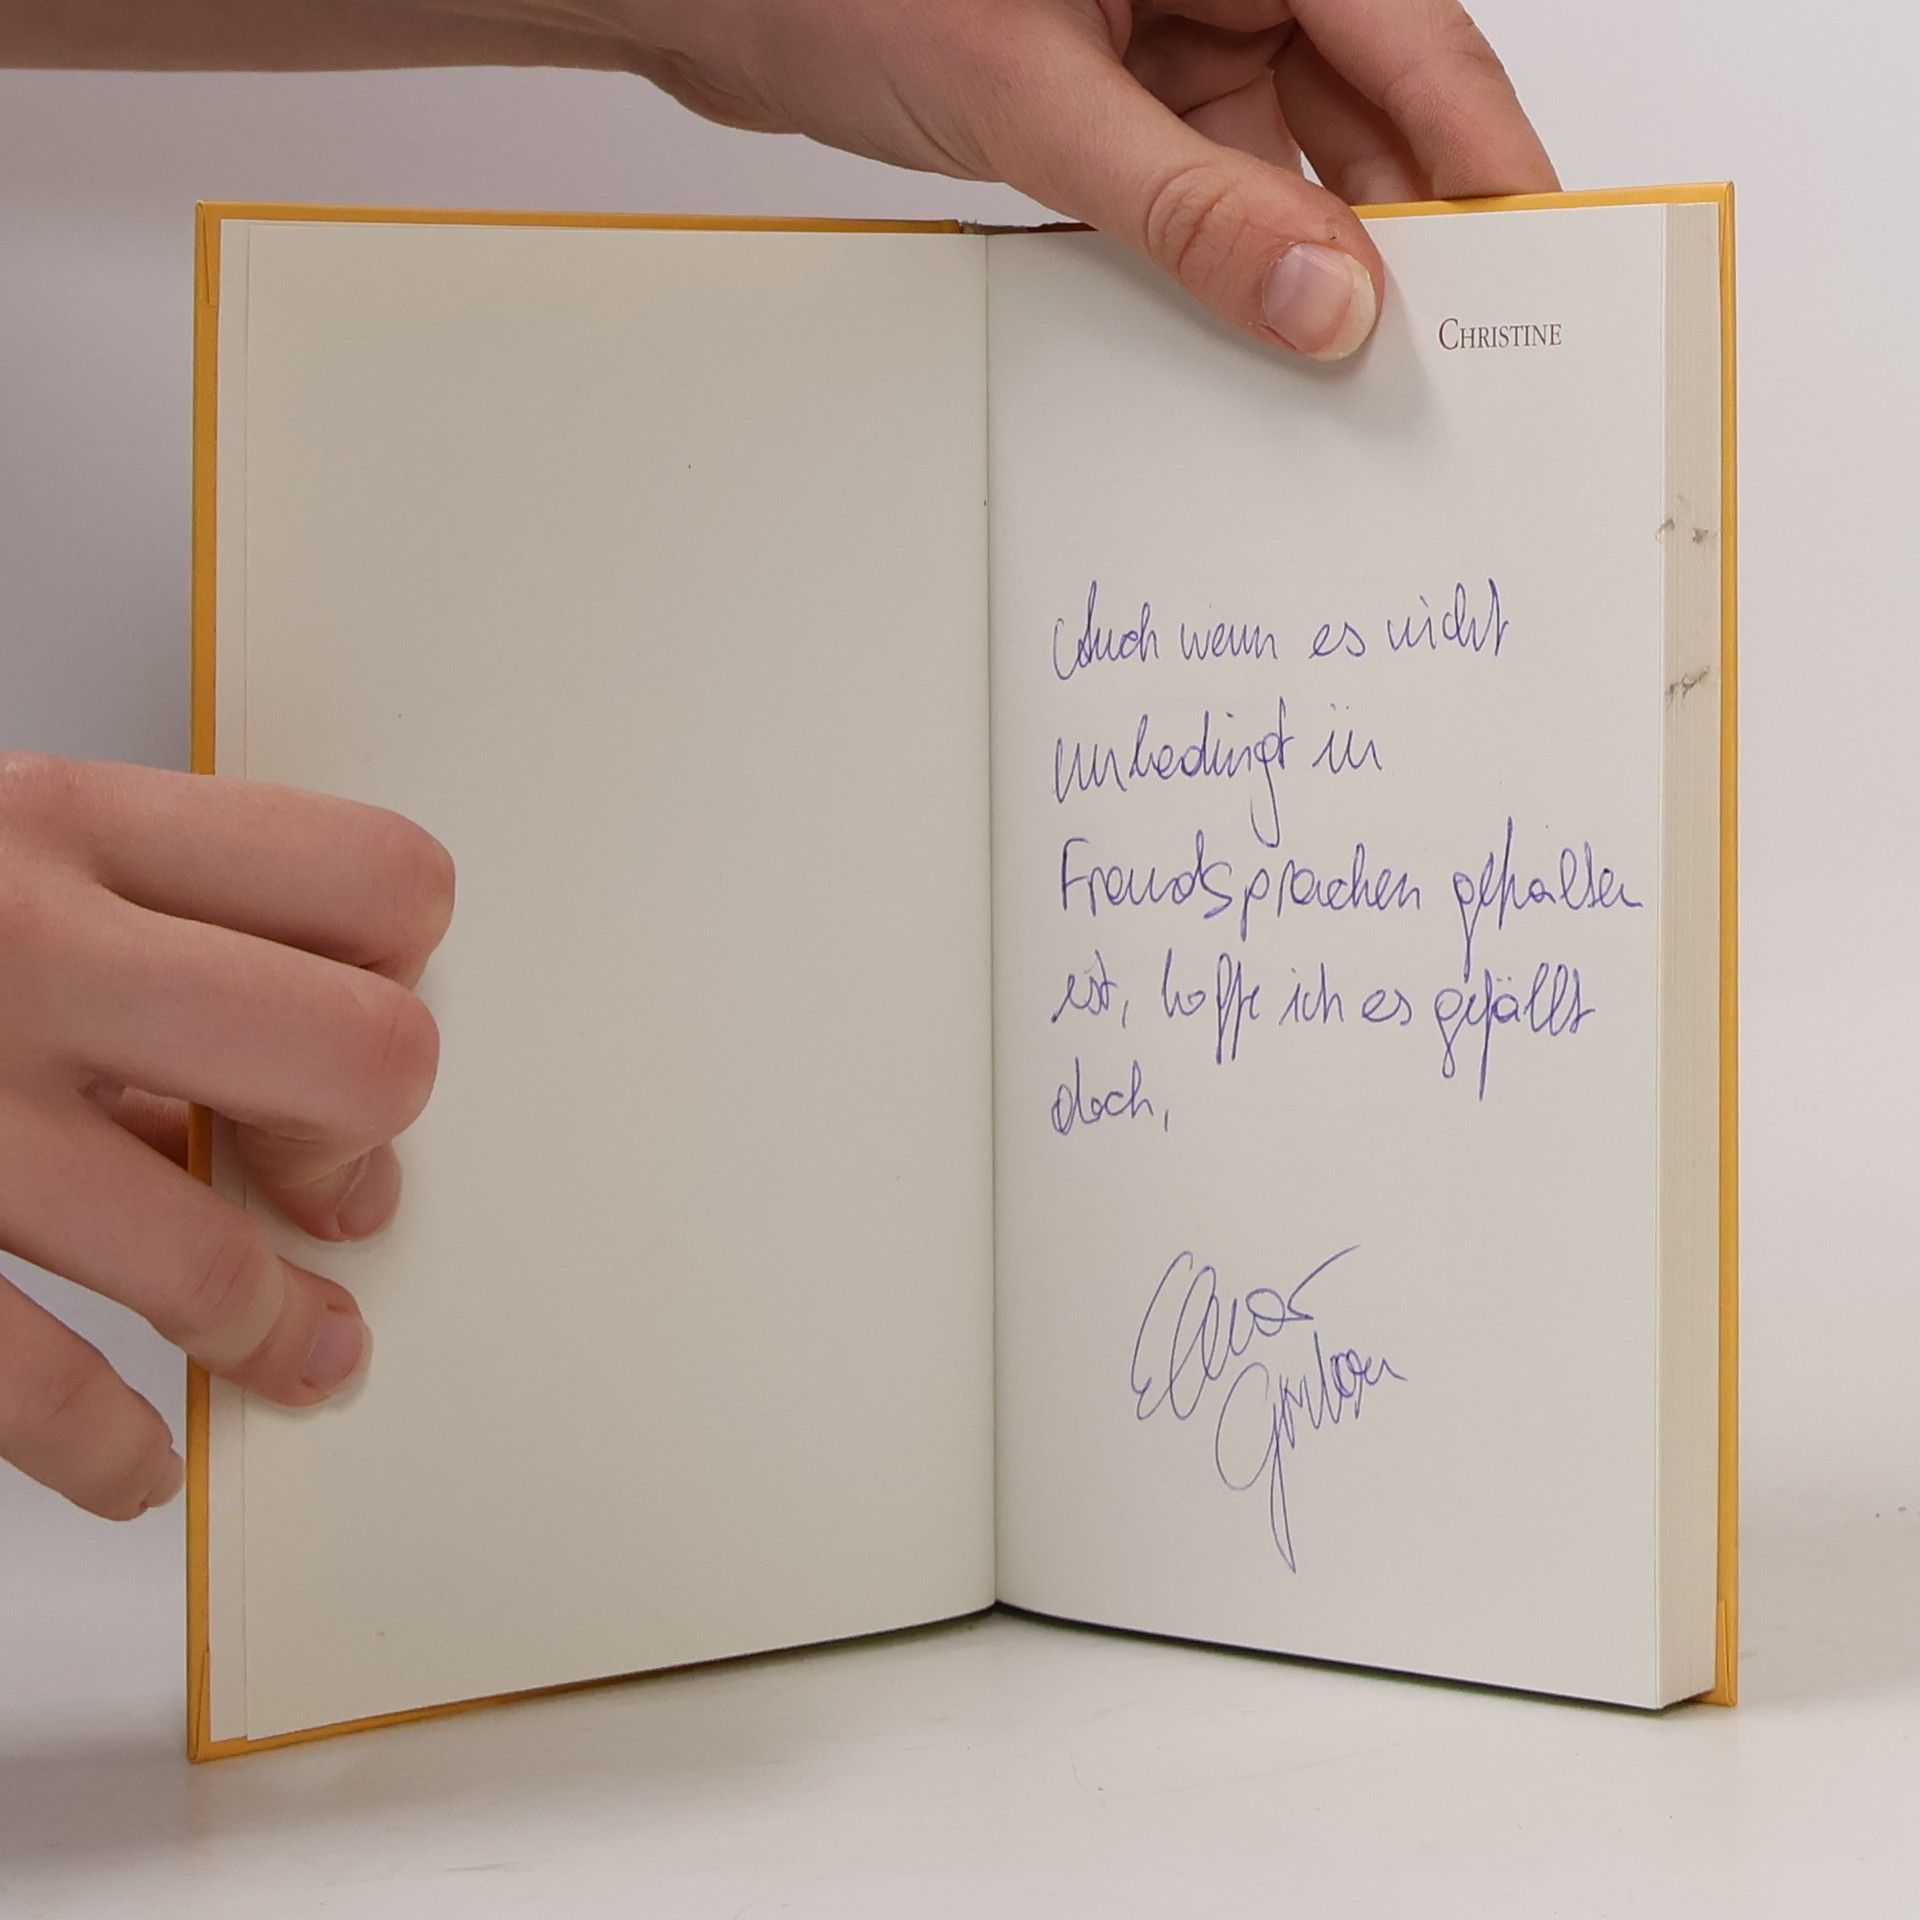 CHRISTINE
Auch wenn es nicht
unbedingt in
Fremdsprachen gehalten
ist, hoffe ich es gefällt
doch,